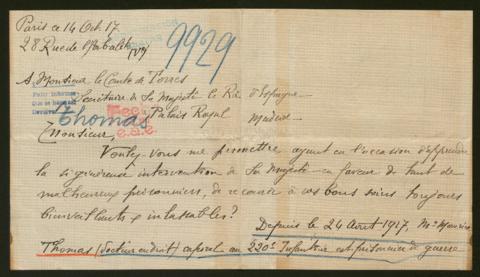 Paris ce 14 Oct. 17
28 Rue de l'Arbalète (Vº)
9929
A Monsieur le Comte de Torres
Secrétaire de Sa Majesté le Roi d'Espagne
Thomas
Palais Royal Madrid
Monsieur,
Voulez-vous me permettre ayant eu l'occasion d'apprendre
la si généreuse intervention de Sa Majesté en faveur de tant de
malheureux prisonniers, de recourir à vos bons soins toujours
bienveillants & inlassables?
Depuis le 24 Avril 1917, Mr Maurice
Thomas (docteur en droit) caporal au 220e Infanterie est prisonnier de guerre